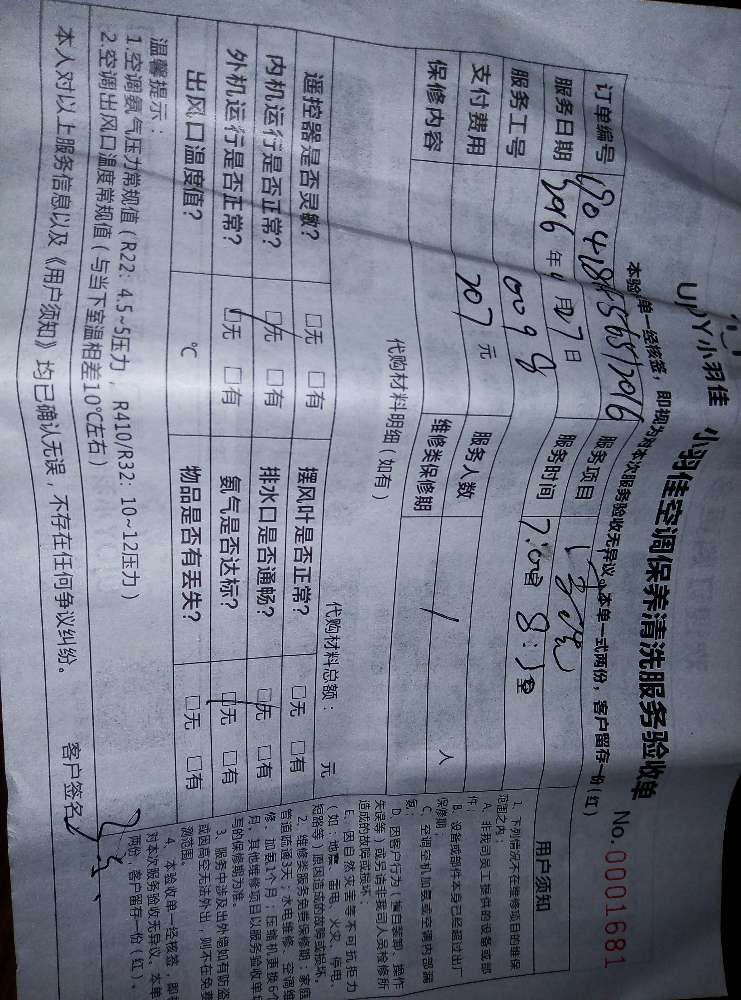 UPYY小羽佳 小羽佳空调保养清洗服务验收单
No.0001681
本验单一经核签，即视为对本次服务验收无异议。本单一式两份，客户留存一份(红)
订单编号 服务项目 清洗
服务日期 2016 年 月 17 日 服务时间
服务工号 0098
支付费用 207 元 服务人数 人
保修内容 维修类保修期 /
代购材料明细（如有） 代购材料总额： 元
遥控器是否灵敏？ □无 □有 摆风叶是否正常？ □无 □有
内机运行是否正常？ □无 □有 排水口是否通畅？ □无 □有
外机运行是否正常？ □无 □有 氨气是否达标？ □无 □有
出风口温度值？ ℃ 物品是否有丢失？ □无 □有
温馨提示：
1.空调氨气压力常规值（R22：4.5~5压力，R410/R32：10~12压力）
2.空调出风口温度常规值（与当下室温相差10℃左右）
本人对以上服务信息以及《用户须知》均已确认无误，不存在任何争议纠纷。
客户签名
用户须知
1、下列情况不在维修项目的维保
范围之内：
A、非我司员工提供的设备或部
件；
B、设备或部件本身已经超过出厂
保修期；
C、空调空机加氨或空调内部漏
氨；
D、因客户行为（擅自装卸、操作
失误等）或另请非我司人员检修所
造成的故障或损坏；
E、因自然灾害等不可抗拒力
（如：地震、雷电、火灾、停电、
短路等）原因造成的故障或损坏。
2、维修类服务免费保修期：家庭
管道疏通3天；水电维修、空调维
修、加氨1个月；压缩机更换6个
月；其他维修项目以服务验收单填
写的保修期为准。
3、服务中涉及出外墙如有防盗
或因高空无法外出，则不在免费
测范围。
4、本验收单一经核签，即视
对本次服务验收无异议。本单一
两份，客户留存一份（红）。